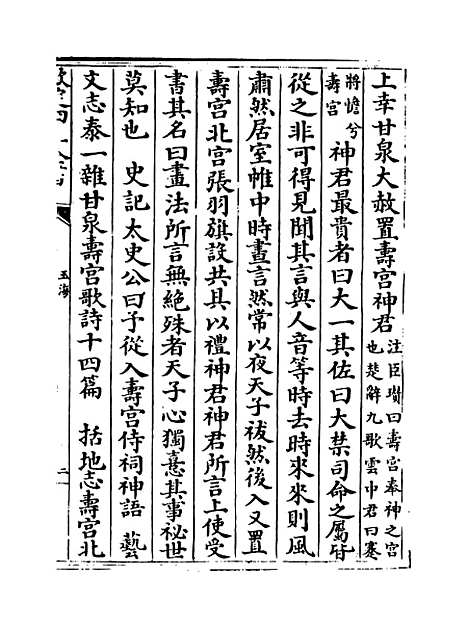 上幸甘泉大赦置壽宮神君注臣瓚曰壽宮奉神之宮
也楚辭九歌雲中君曰蹇
將憺兮
壽宮神君最貴者曰大一其佐曰大禁司命之屬皆
從之非可得見聞其言與人音等時去時來來則風
肅然居室帷中時晝言然常以夜天子祓然後入又置
壽宮北宮張羽旗設共具以禮神君神君所言上使受
書其名曰畫法所言無絶殊者天子心獨憙其事祕世
莫知也　史記太史公曰予從入壽宮侍祠神語　藝
文志泰一雜甘泉壽宮歌詩十四篇　括地志壽宮北
玉海
二